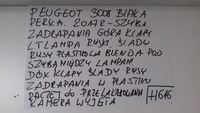 PEUGEOT 3008 BIAŁA
PERŁA. 20A7R-SZYBA
ZADRAPANIA GÓRA KLAPY
LTLAMPA RYSKI ŚLADY
RYSY PLASTIKOWA BLENDA POD
SZYBĄ MIĘDZY LAMPAMI
DÓŁ KLAPY ŚLADY RYSY
ZADRAPANIA W PLASTIKU
DACIET do PRZELAKIEROWANIA
KAMERA WYJĘTA
H616